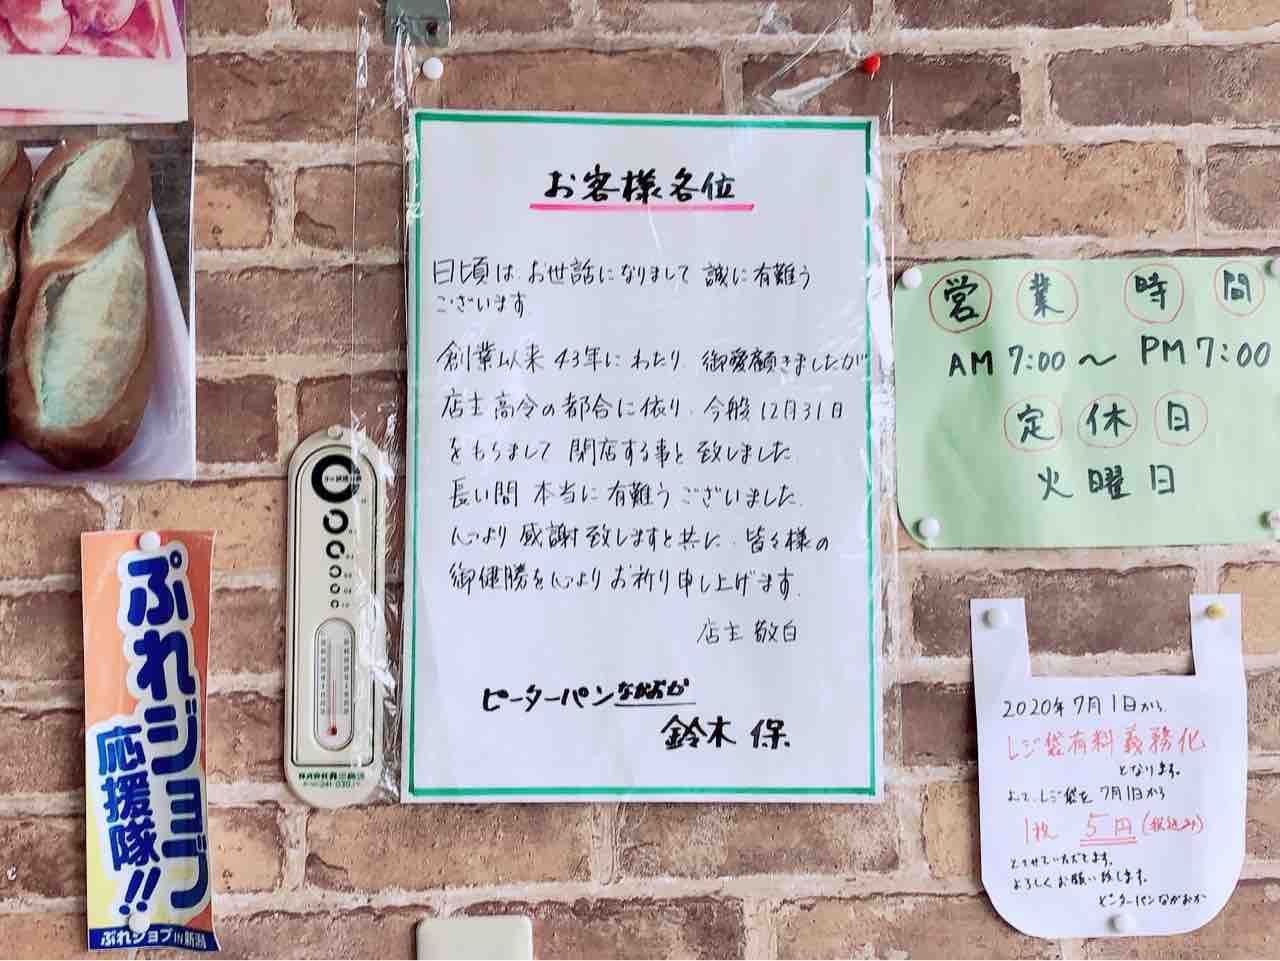 お客様各位
日頃は、お世話になりまして 誠に有難う
ございます。
創業以来 43年にわたり 御愛顧きましたが
店主 高令の都合に依り、今般12月31日
をもちまして 閉店する事と 致しました。
長い間 本当に有難うございました。
心より 感謝致しますと共に、皆々様の
御健勝を心よりお祈り申し上げます。
店主 敬白
ピーターパンながおか
鈴木 保
営業時間
AM 7:00〜 PM 7:00
定休日
火曜日
2020年7月1日から
レジ袋有料義務化
となります。
よって、レジ袋を 7月1日から
1枚 5円(税込み)
とさせていただきます。
よろしくお願い致します。
ピーターパンながおか
ぷれジョブ
応援隊!!
ぷれジョブIN新潟